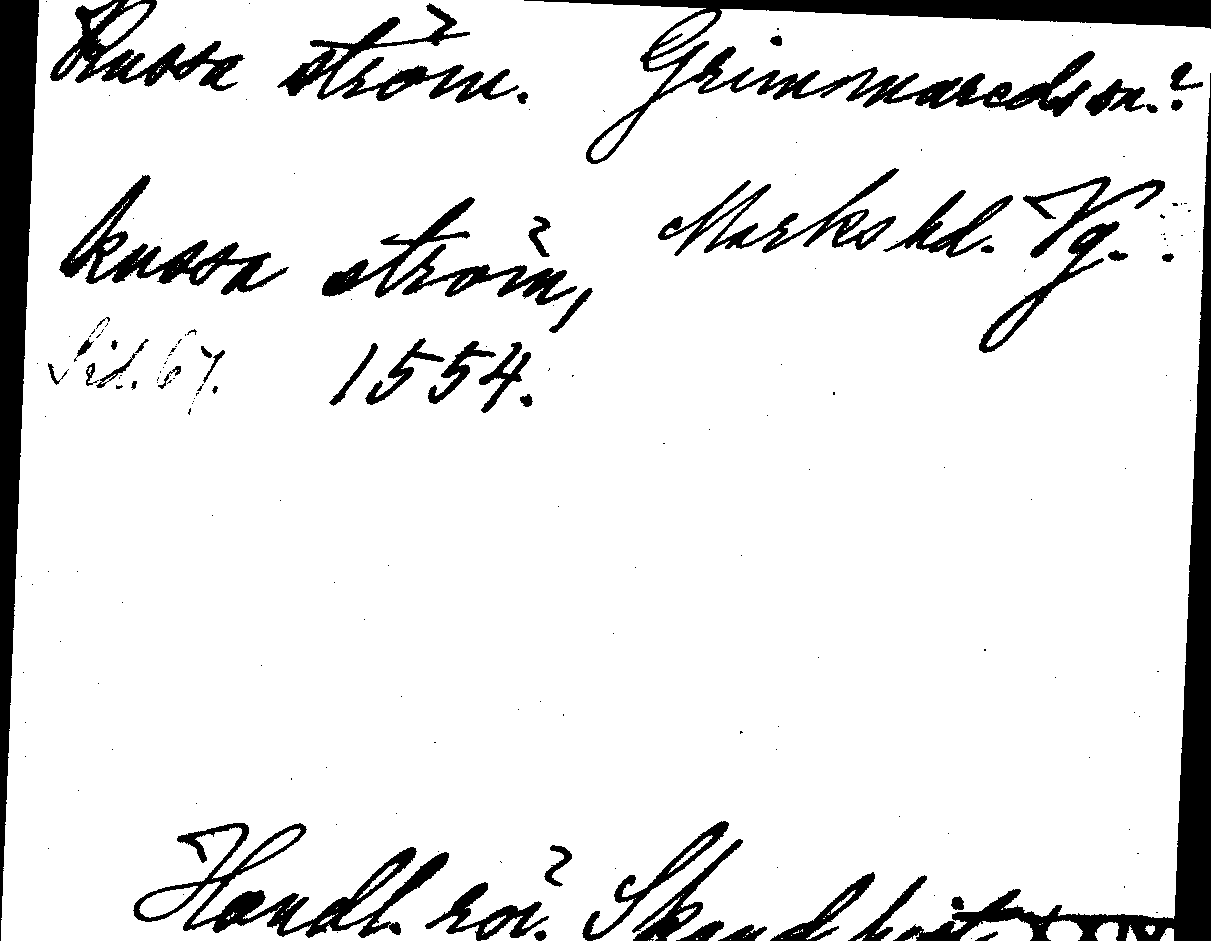 Kussa ström. Grimmaredssn.?
kussa ström, Marks hd. Vg.
Sid. 67. 1554.
Handl. rör. Skand. hist.